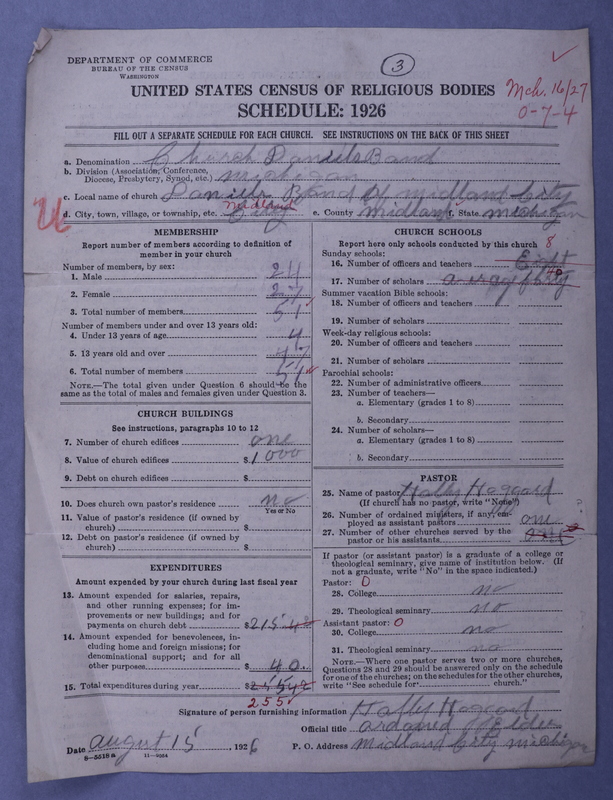 DEPARTMENT OF COMMERCE
BUREAU OF THE CENSUS
WASHINGTON
3
UNITED STATES CENSUS OF RELIGIOUS BODIES
SCHEDULE: 1926
Mch. 16/27
0-7-4
FILL OUT A SEPARATE SCHEDULE FOR EACH CHURCH. SEE INSTRUCTIONS ON THE BACK OF THIS SHEET
a. Denomination Church Daniels Band
b. Division (Association, Conference, Diocese, Presbytery, Synod, etc.) michigan
c. Local name of church Daniels Band of midland City
d. City, town, village, or township, etc. Midland City e. County midland f. State michigan
MEMBERSHIP
Report number of members according to definition of
member in your church
Number of members, by sex:
1. Male 24
2. Female 27
3. Total number of members 51
Number of members under and over 13 years old:
4. Under 13 years of age 4
5. 13 years old and over 47
6. Total number of members 51
NOTE.—The total given under Question 6 should be the
same as the total of males and females given under Question 3.
CHURCH BUILDINGS
See instructions, paragraphs 10 to 12
7. Number of church edifices one
8. Value of church edifices $1000
9. Debt on church edifices $
10. Does church own pastor's residence no
Yes or No
11. Value of pastor's residence (if owned by
church) $
12. Debt on pastor's residence (if owned by
church) $
EXPENDITURES
Amount expended by your church during last fiscal year
13. Amount expended for salaries, repairs,
and other running expenses; for im-
provements or new buildings; and for
payments on church debt $215
14. Amount expended for benevolences, in-
cluding home and foreign missions; for
denominational support; and for all
other purposes $40.
15. Total expenditures during year $
255
CHURCH SCHOOLS
Report here only schools conducted by this church
Sunday schools: 8
16. Number of officers and teachers Eight
40
17. Number of scholars
Summer vacation Bible schools:
18. Number of officers and teachers
19. Number of scholars
Week-day religious schools:
20. Number of officers and teachers
21. Number of scholars
Parochial schools:
22. Number of administrative officers
23. Number of teachers—
a. Elementary (grades 1 to 8)
b. Secondary
24. Number of scholars—
a. Elementary (grades 1 to 8)
b. Secondary
PASTOR
25. Name of pastor Haggard
(If church has no pastor, write "None")
26. Number of ordained ministers, if any, em-
ployed as assistant pastors one
27. Number of other churches served by the
pastor or his assistants
If pastor (or assistant pastor) is a graduate of a college or
theological seminary, give name of institution below. (If
not a graduate, write "No" in the space indicated.)
Pastor: 0
28. College no
29. Theological seminary no
Assistant pastor: 0
30. College no
31. Theological seminary no
NOTE.—Where one pastor serves two or more churches,
Questions 28 and 29 should be answered only on the schedule
for one of the churches; on the schedules for the other churches,
write "See schedule for church."
Signature of person furnishing information Haggard
Official title ordained Elder
Date august 15, 1926 P. O. Address Midland City michigan
8-5518a 11-9364